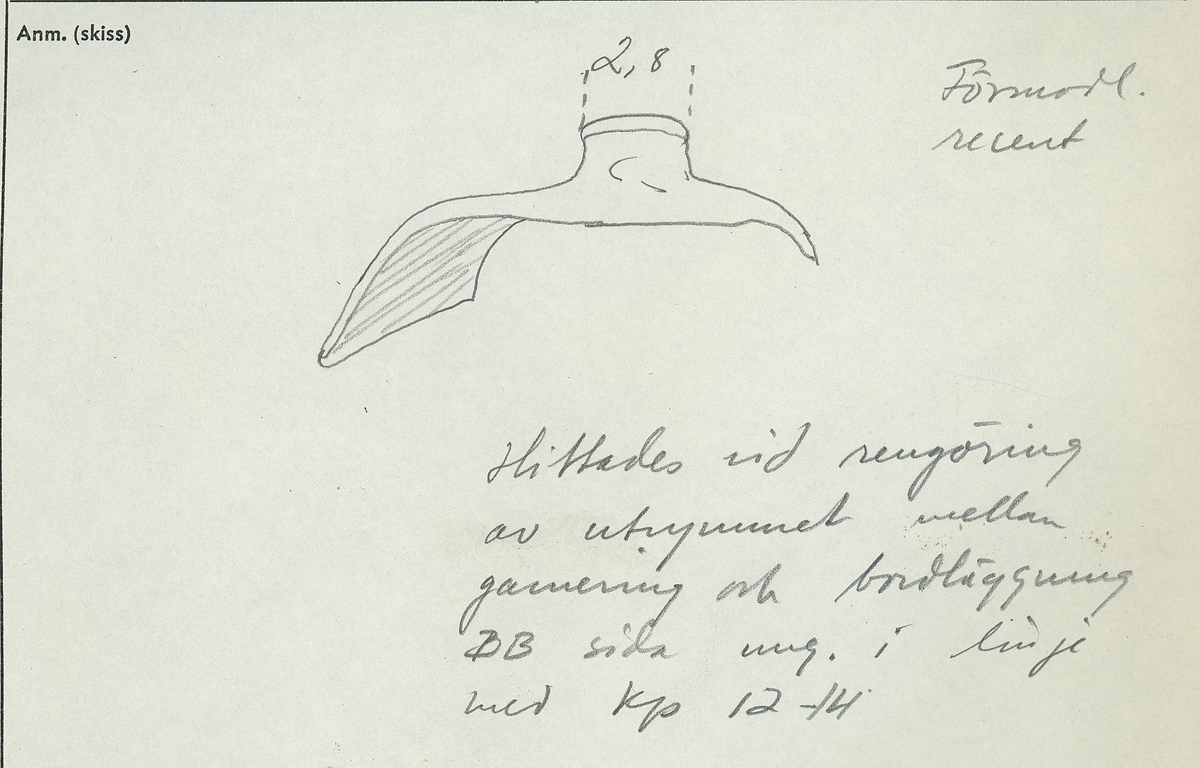 Anm. (skiss)
2,8
Förmodl.
recent
Hittades vid rengöring
av utrymmet mellan
garnering och bordläggning
BB sida ung. i linje
med Kp 12-14